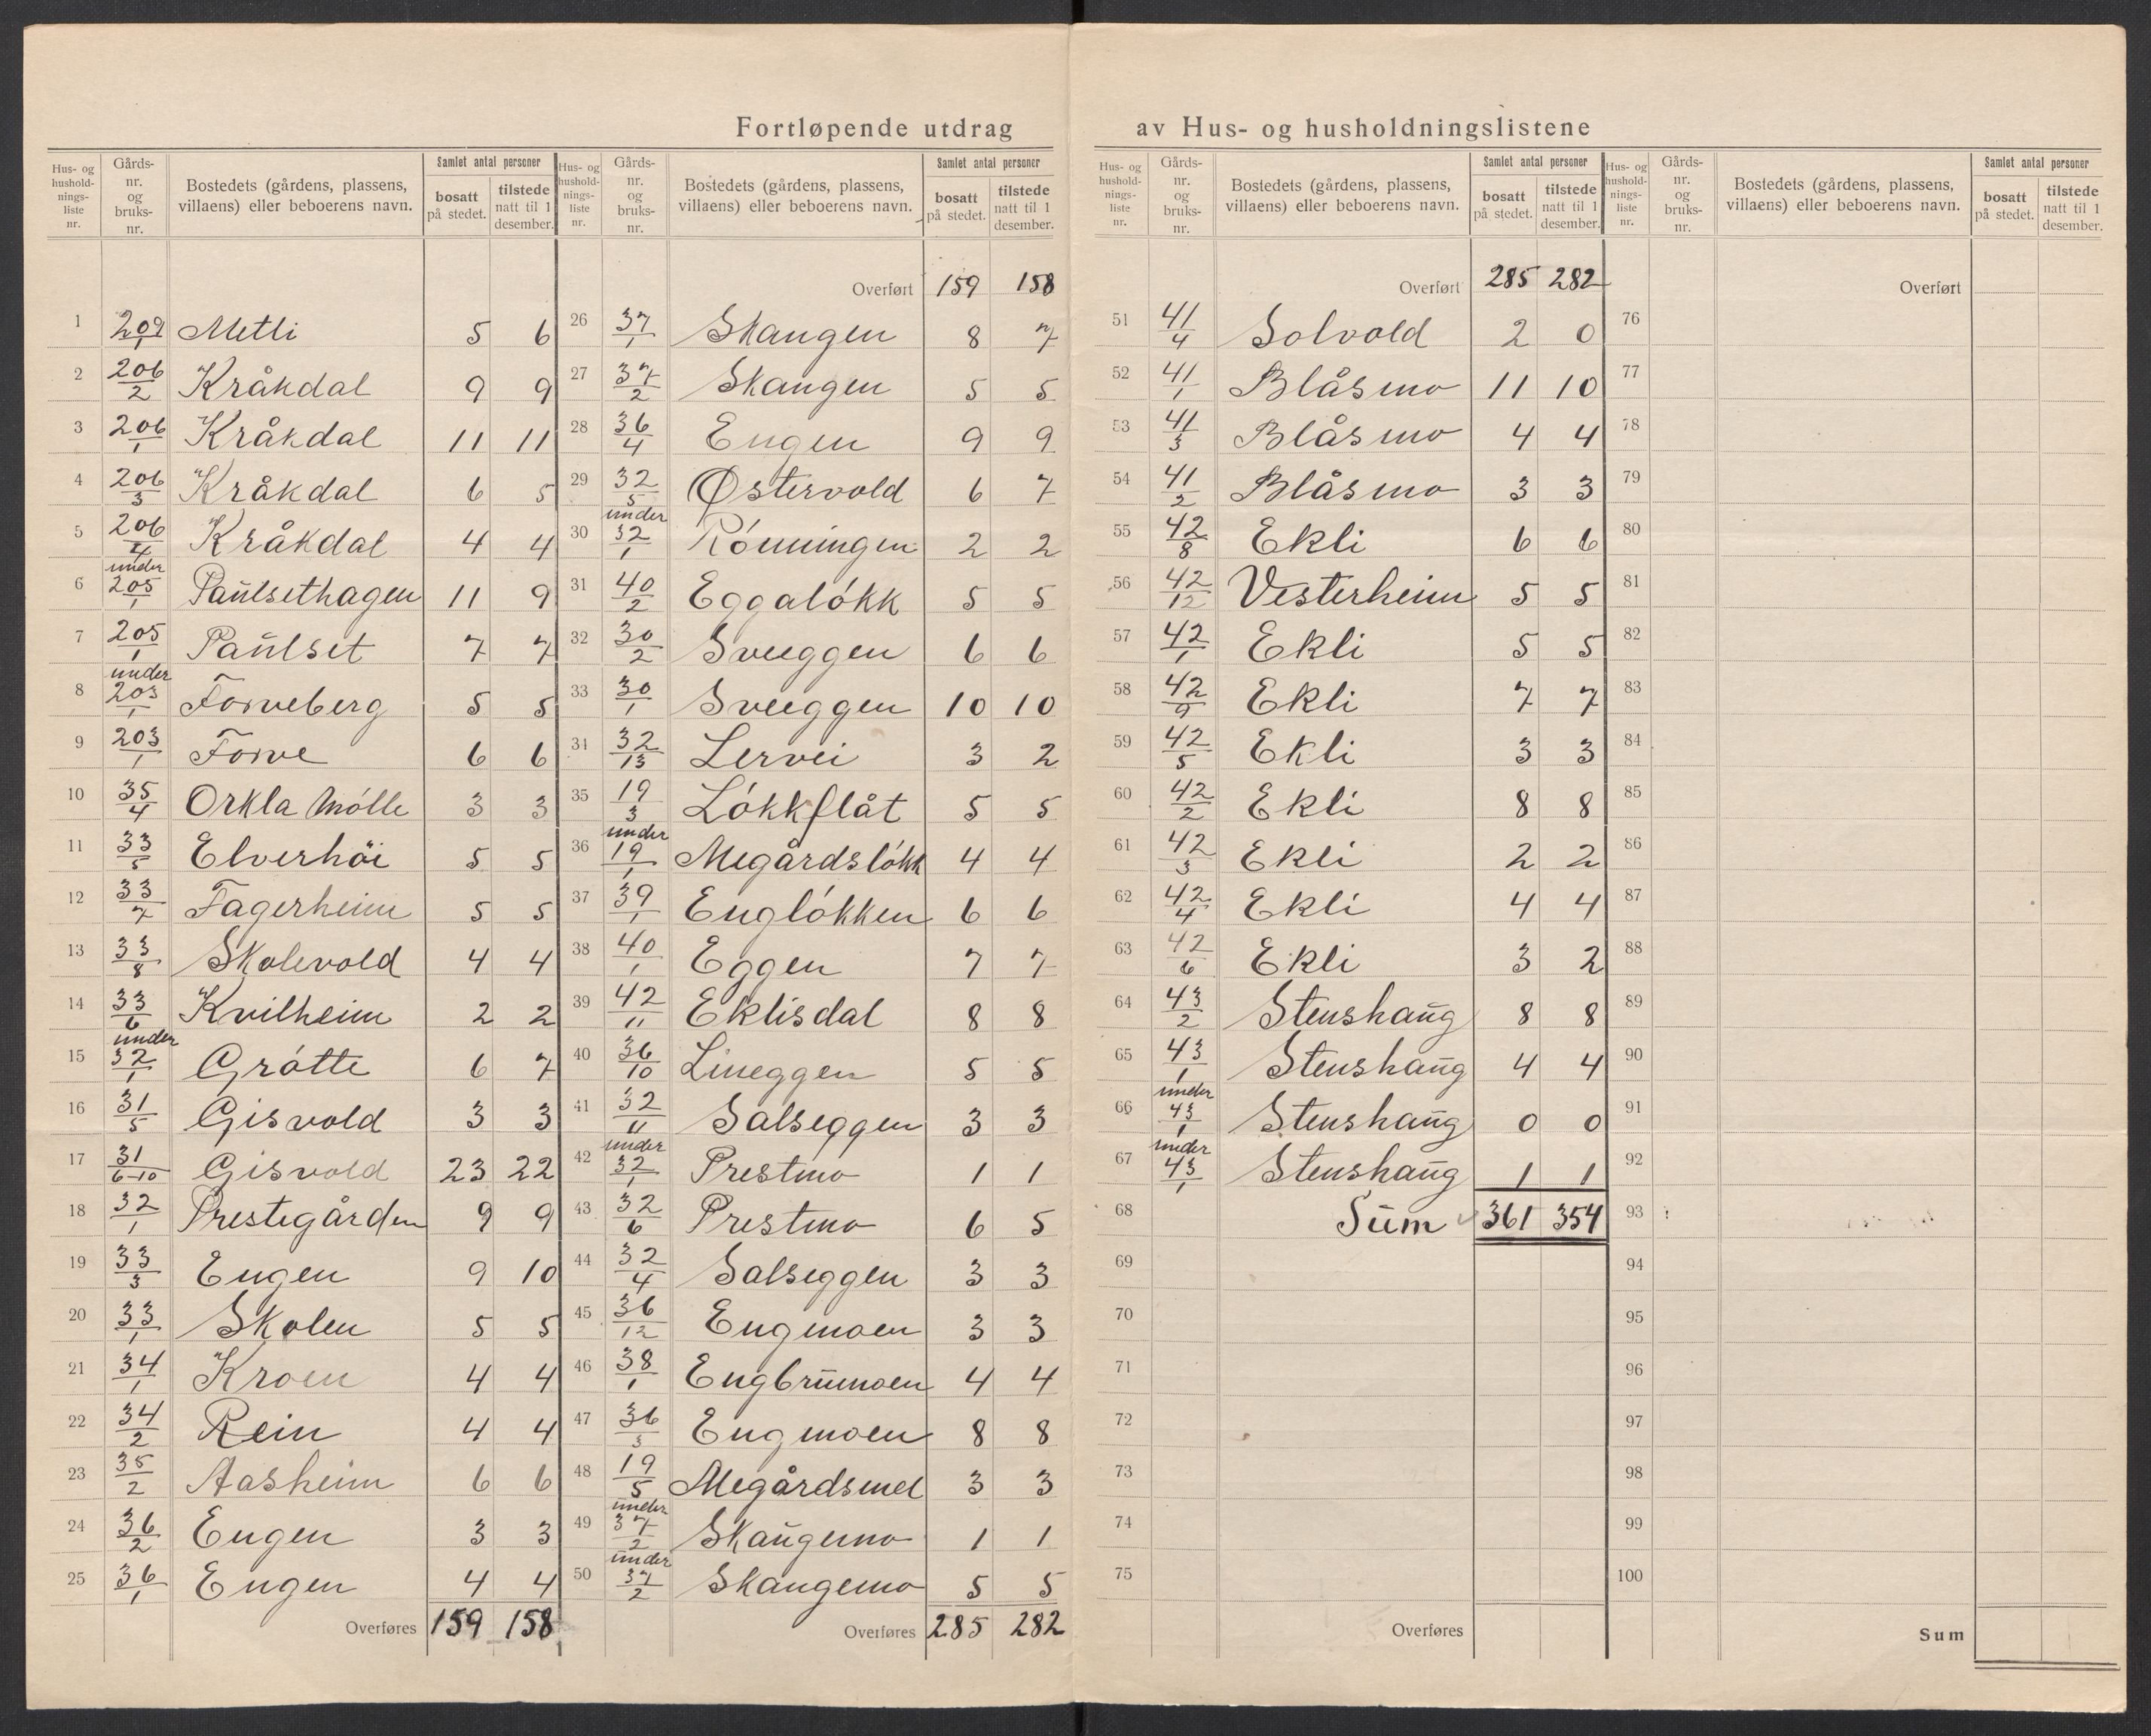 Fortløpende utdrag av Hus- og husholdningslistene
Hus- og hushold-nings-liste nr. | Gårds-nr. og bruks-nr. | Bostedets (gårdens, plassens, villaens) eller beboerens navn. | Samlet antal personer | bosatt på stedet. | tilstede natt til 1 desember.
1 209/1 Metli 5 6
2 206/2 Kråkdal 9 9
3 206/1 Kråkdal 11 11
4 206/3 Kråkdal 6 5
5 206/4 Kråkdal 4 4
6 under 205/1 Paŭlsethagen 11 9
7 205/1 Paŭlset 7 7
8 under 203/1 Forveberg 5 5
9 203/1 Forve 6 6
10 35/4 Orkla Mólle 3 3
11 33/5 Elverhöi 5 5
12 33/7 Fagerheim 5 5
13 33/8 Skolevold 4 4
14 33/6 Kvilheim 2 2
15 under 32/1 Grótte 6 7
16 31/5 Gisvold 3 3
17 31/6-10 Gisvold 23 22
18 32/1 Prestegården 9 9
19 33/3 Engen 9 10
20 33/1 Skolen 5 5
21 34/1 Kroen 4 4
22 34/2 Rein 4 4
23 35/2 Aasheim 6 6
24 36/2 Engen 3 3
25 36/1 Engen 4 4
Overføres 159 158
Hus- og hushold-nings-liste nr. | Gårds-nr. og bruks-nr. | Bostedets (gårdens, plassens, villaens) eller beboerens navn. | Samlet antal personer | bosatt på stedet. | tilstede natt til 1 desember.
Overført 159 158
26 37/1 Skangen 8 7
27 37/2 Skangen 5 5
28 36/4 Engen 9 9
29 32/5 Østervold 6 7
30 under 32/1 Rónningen 2 2
31 40/2 Eggalókk 5 5
32 30/2 Sveeggen 6 6
33 30/1 Sveeggen 10 10
34 32/13 Lervei 3 2
35 19/3 Lókkflåt 5 5
36 under 19/1 Megårdslókk 4 4
37 39/1 Englókken 6 6
38 40/1 Eggen 7 7
39 42/11 Eklisdal 8 8
40 36/10 Lineggen 5 5
41 32/11 Salseggen 3 3
42 under 32/1 Prestmo 1 1
43 32/6 Prestmo 6 5
44 32/4 Salseggen 3 3
45 36/12 Engmoen 3 3
46 38/1 Engbrŭmoen 4 4
47 36/3 Engmoen 8 8
48 19/5 Megårdsmel 3 3
49 under 37/2 Skaŭgemo 1 1
50 under 37/2 Skaugemo 5 5
Overføres 285 282
Hus- og hushold-nings-liste nr. | Gårds-nr. og bruks-nr. | Bostedets (gårdens, plassens, villaens) eller beboerens navn. | Samlet antal personer | bosatt på stedet. | tilstede natt til 1 desember.
Overført 285 282
51 41/4 Solvold 2 0
52 41/1 Blåsmo 11 10
53 41/3 Blåsmo 4 4
54 41/2 Blåsmo 3 3
55 42/8 Ekli 6 6
56 42/12 Vesterheim 5 5
57 42/1 Ekli 5 5
58 42/9 Ekli 7 7
59 42/5 Ekli 3 3
60 42/2 Ekli 8 8
61 42/3 Ekli 2 2
62 42/4 Ekli 4 4
63 42/6 Ekli 3 2
64 43/2 Stenshaŭg 8 8
65 43/1 Stenshaŭg 4 4
66 under 43/1 Stenshaŭg 0 0
67 under 43/1 Stenshaŭg 1 1
68 Sŭm 361 354
69
70
71
72
73
74
75
Overføres
Hus- og hushold-nings-liste nr. | Gårds-nr. og bruks-nr. | Bostedets (gårdens, plassens, villaens) eller beboerens navn. | Samlet antal personer | bosatt på stedet. | tilstede natt til 1 desember.
Overført
76
77
78
79
80
81
82
83
84
85
86
87
88
89
90
91
92
93
94
95
96
97
98
99
100
Sum